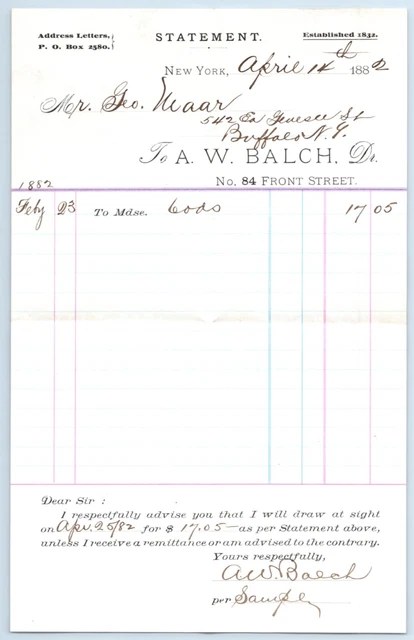 Address Letters,
P. O. Box 2580.
STATEMENT.
Established 1832.
New York, April 14th 1882
Mr. Geo. Maar
542 Ea Genesee St
Buffalo N.Y.
To A. W. BALCH, Dr.
No. 84 FRONT STREET.
1882
Feby 23 To Mdse. Cods 17 05
Dear Sir :
I respectfully advise you that I will draw at sight
on Apr. 20/82 for $ 17.05 — as per Statement above,
unless I receive a remittance or am advised to the contrary.
Yours respectfully,
A.W. Balch
per